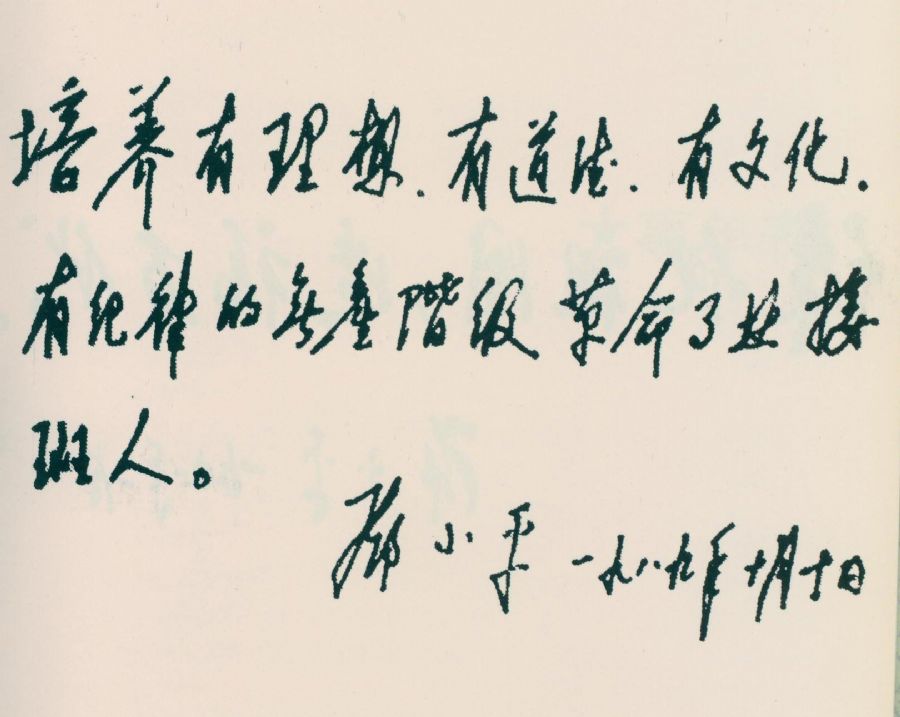 培养有理想、有道德、有文化、
有纪律的无产阶级革命事业接
班人。
邓小平 一九八九年十月十日